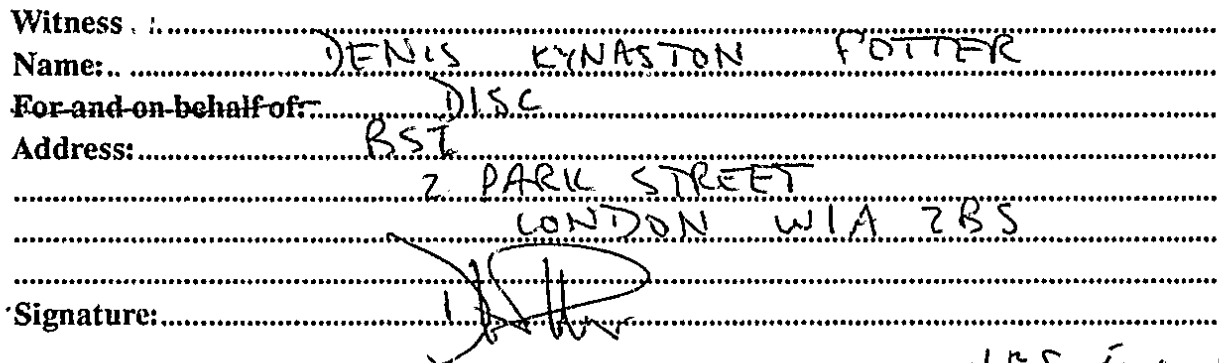 Witness :
Name: DENIS KYNASTON POTTER
For and on behalf of: DISC
Address: BSI
2 PARK STREET
LONDON W1A 2BS
Signature: